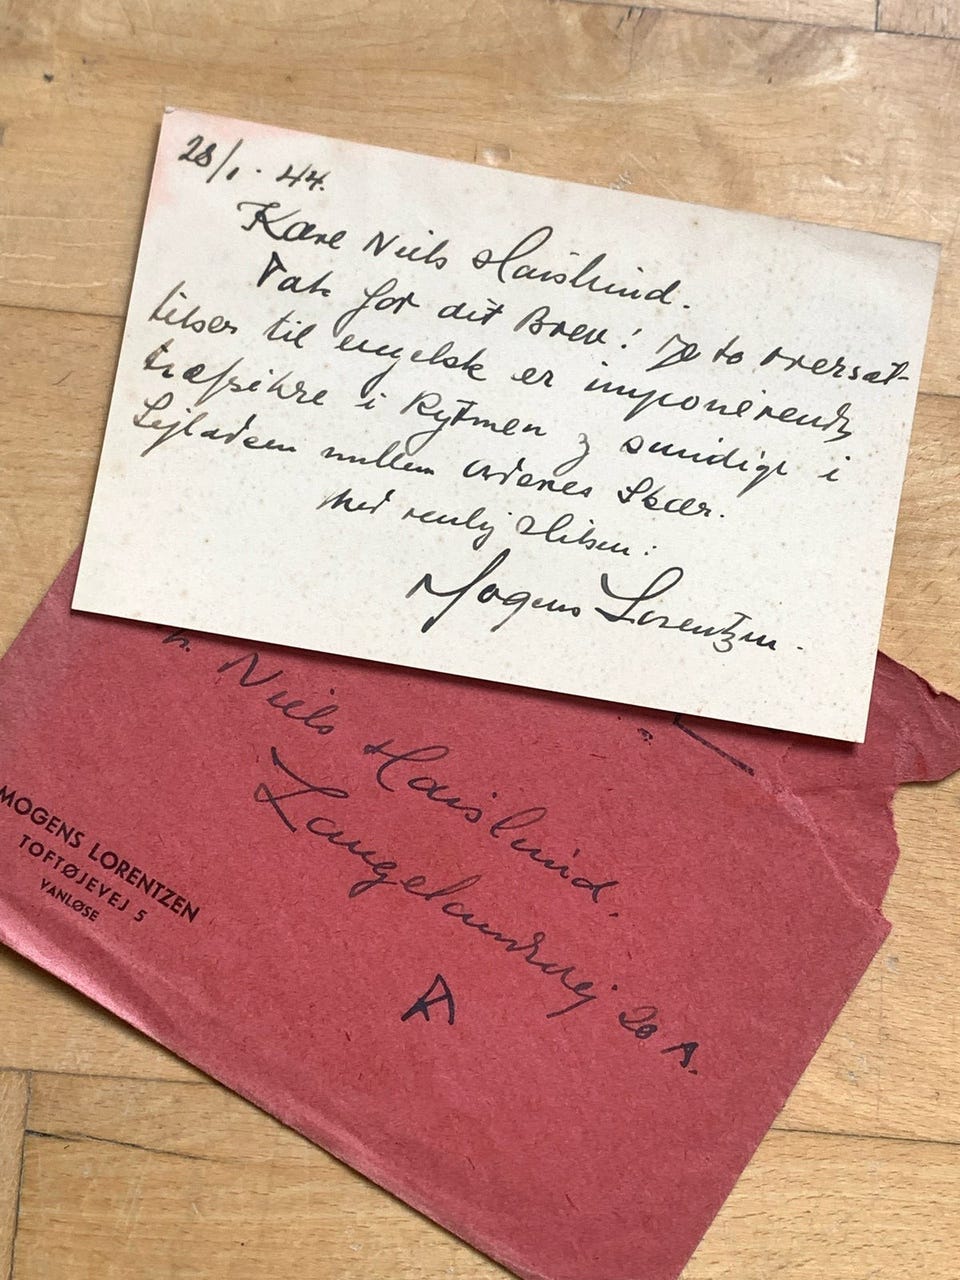 28/1. 44.
Kære Niels Haislund.
Tak for dit Brev! De to oversæt-
telser til engelsk er imponerende
træfsikre i Rytmen og smidige i
Sejladsen mellem Ordenes Skær.
Med venlig Hilsen:
Mogens Lorentzen.
Niels Haislund.
Langelandsvej 20 A.
F
MOGENS LORENTZEN
TOFTØJEVEJ 5
VANLØSE